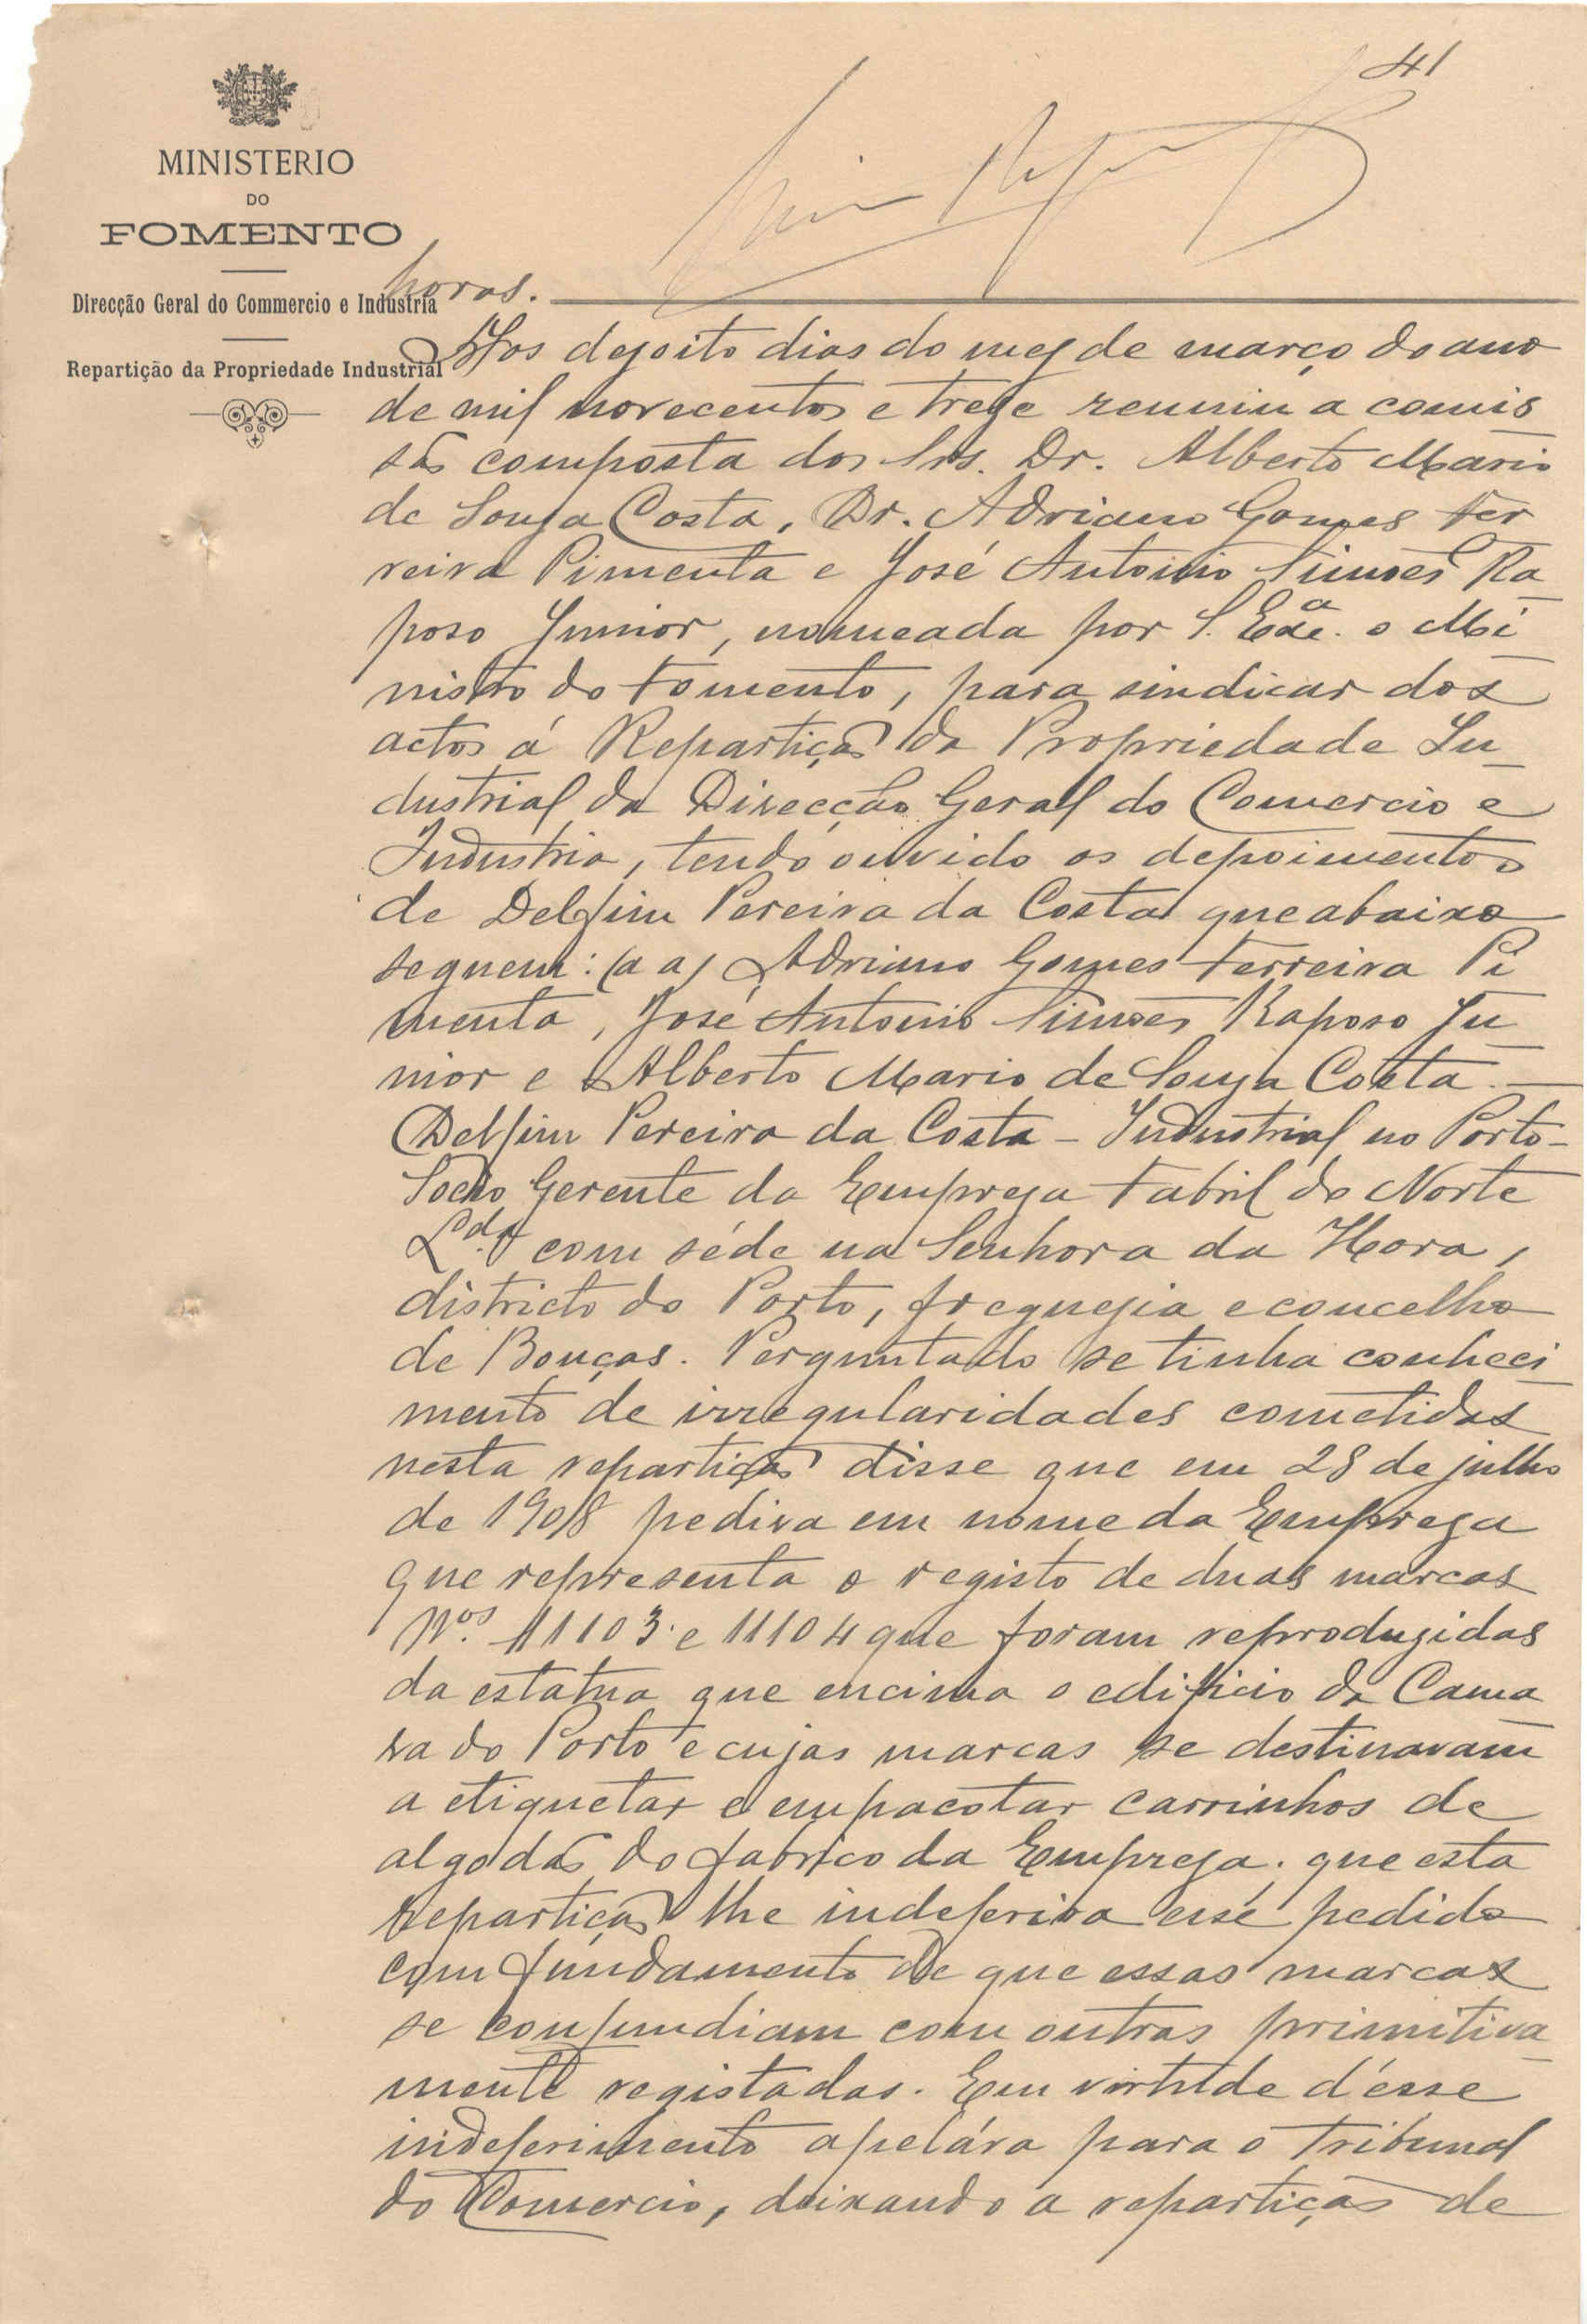 41
MINISTERIO
DO
FOMENTO
Direcção Geral do Commercio e Industria
Repartição da Propriedade Industrial
horas.
Aos dezoito dias do mez de março do ano
de mil novecentos e treze reuniu a comis
são composta dos Srs. Dr. Alberto Mario
de Souza Costa, Dr. Adriano Gomes Fer
reira Pimenta e José Antonio Simões Ra
poso Junior, nomeada por S. Exª. o Mi
nistro do Fomento, para sindicar dos
actos á Repartição da Propriedade In
dustrial da Direcção Geral do Comercio e
Industria, tendo ouvido os depoimentos
de Delfim Pereira da Costa que abaixo
seguem: (a a) Adriano Gomes Ferreira Pi
menta, José Antonio Simões Raposo Ju
nior e Alberto Mario de Souza Costa.—
Delfim Pereira da Costa - Industrial no Porto -
Socio Gerente da Empreza Fabril do Norte
Lda com séde na Senhora da Hora,
districto do Porto, freguezia e concelho
de Bouças. Perguntado se tinha conheci
mento de irregularidades cometidas
nesta repartição disse que em 28 de julho
de 1908 pedira em nome da Empreza
que representa o registo de duas marcas
Nos. 11103 e 11104 que foram reproduzidas
da estatua que encima o edificio da Cama
ra do Porto e cujas marcas se destinavam
a etiquetar e empacotar carrinhos de
algodão do fabrico da Empreza; que esta
repartição lhe indeferira esse pedido
com fundamento de que essas marcas
se confundiam com outras primitiva
mente registadas. Em virtude d'esse
indeferimento apelára para o Tribunal
do Comercio, deixando a repartição de